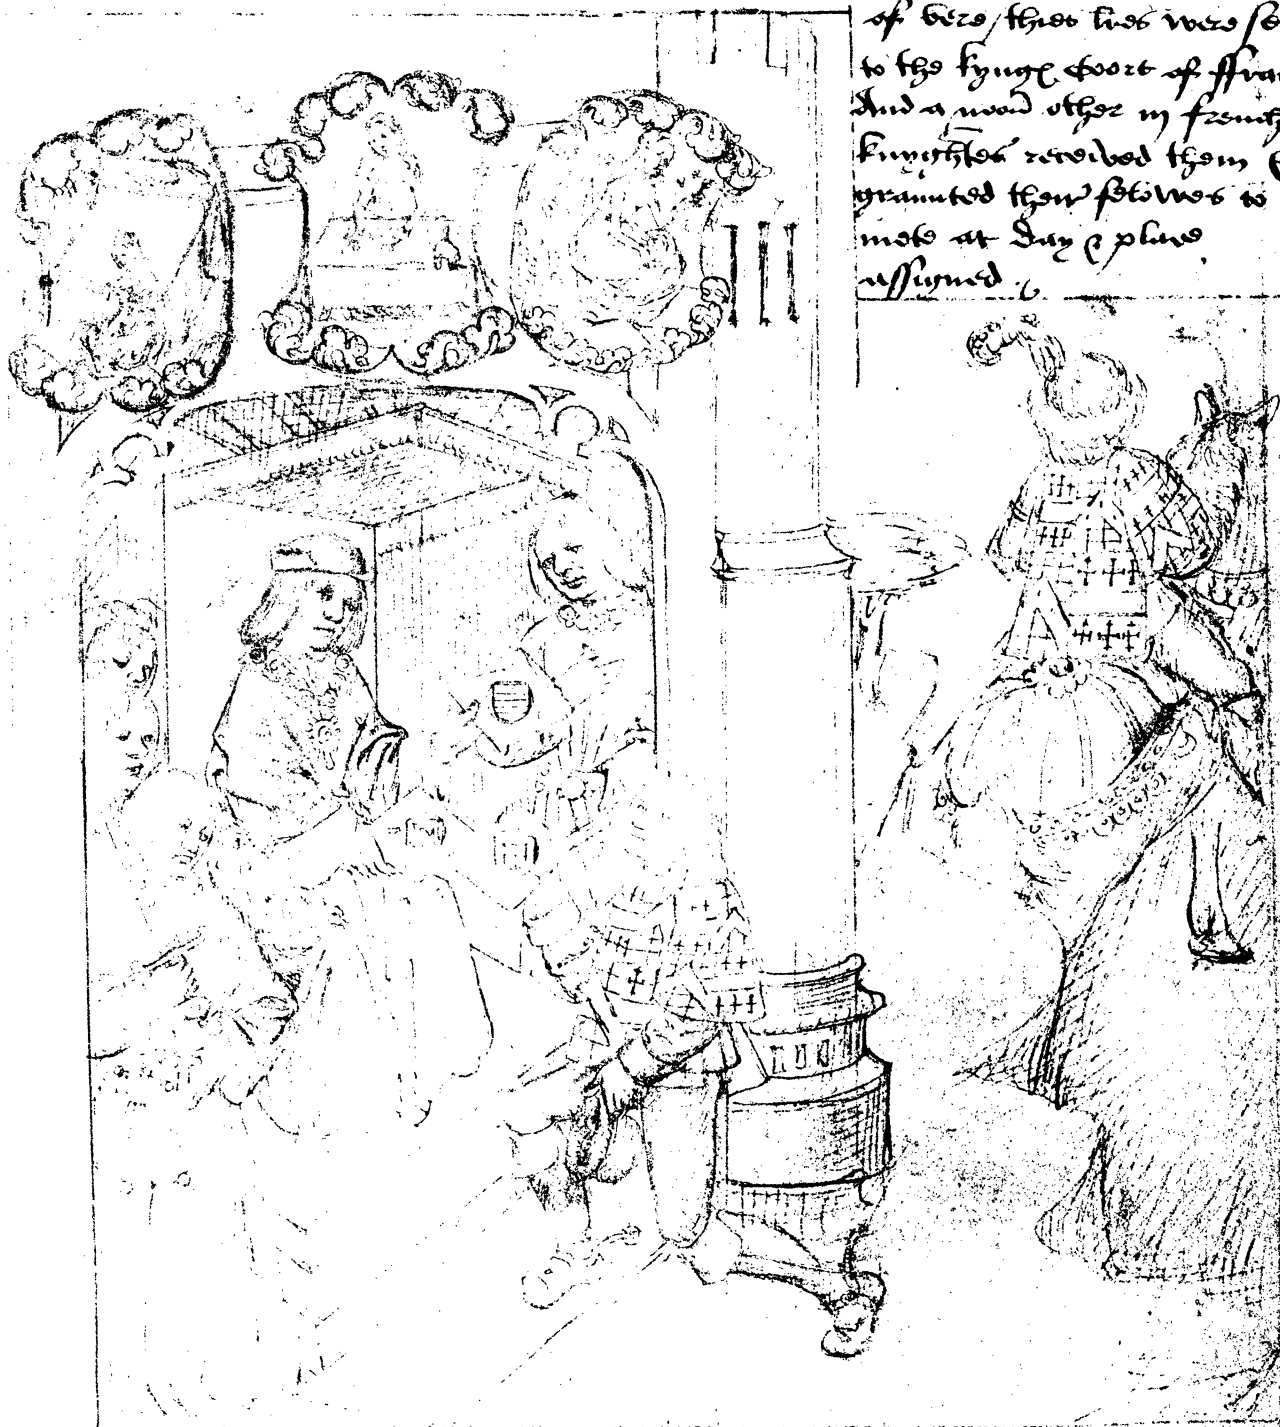 of vere / thies lres were se
to the kyngꝭ Coort of ffra
And a noon other in french
knyghtes received them
graunted their felowes to
mete at day & place
assigned